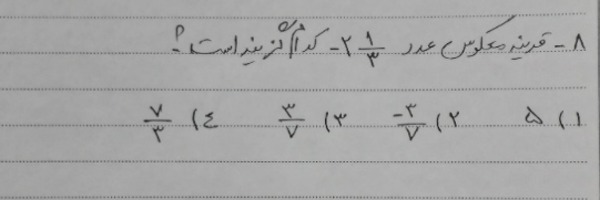 ۸- قرینه معکوس عدد ۲ ۱/۳- کدام گزینه است؟
۱) ۵ ۲) -۳/۷ ۳) ۳/۷ ۴) ۷/۳